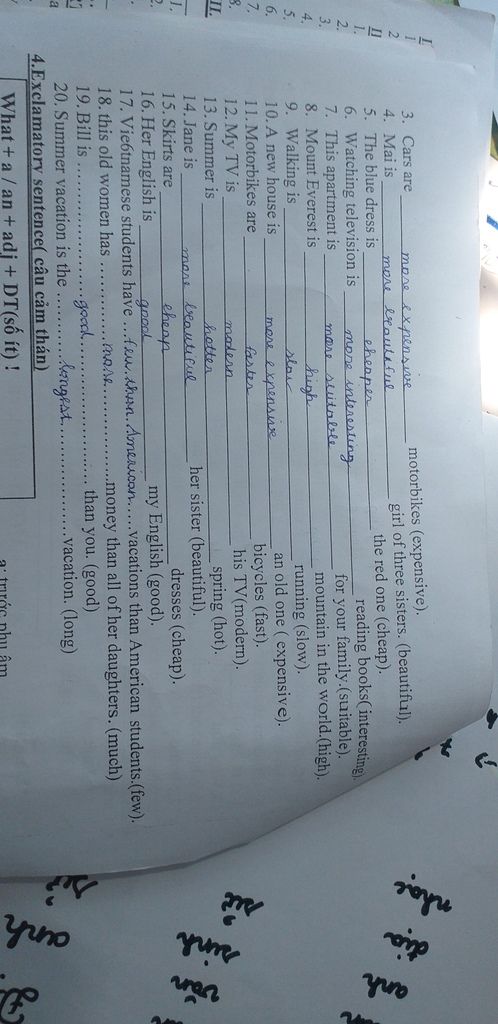 I
1
2
II
1.
2.
3.
4.
5.
6.
7.
8.
II.
1.
2.
3. Cars are more expensive motorbikes (expensive).
4. Mai is more beautiful girl of three sisters. (beautiful).
5. The blue dress is cheaper the red one (cheap).
6. Watching television is more interesting reading books(interesting).
7. This apartment is more suitable for your family.(suitable).
8. Mount Everest is high mountain in the world.(high).
9. Walking is slow running (slow).
10. A new house is more expensive an old one ( expensive).
11. Motorbikes are faster bicycles (fast).
12. My TV is modern his TV(modern).
13. Summer is hotter spring (hot).
14. Jane is more beautiful her sister (beautiful).
15. Skirts are cheap dresses (cheap).
16. Her English is good my English (good).
17. Vie6tnamese students have ...few than American.... vacations than American students.(few).
18. this old women has ............more.............money than all of her daughters. (much)
19. Bill is ......................good...................... than you. (good)
20. Summer vacation is the ............longest.................vacation. (long)
4.Exclamatory sentence( câu cảm thán)
What + a / an + adj + DT(số ít) !
a: trước phụ âm
nhạc
địa
anh
sử
sinh
văn
sử
anh